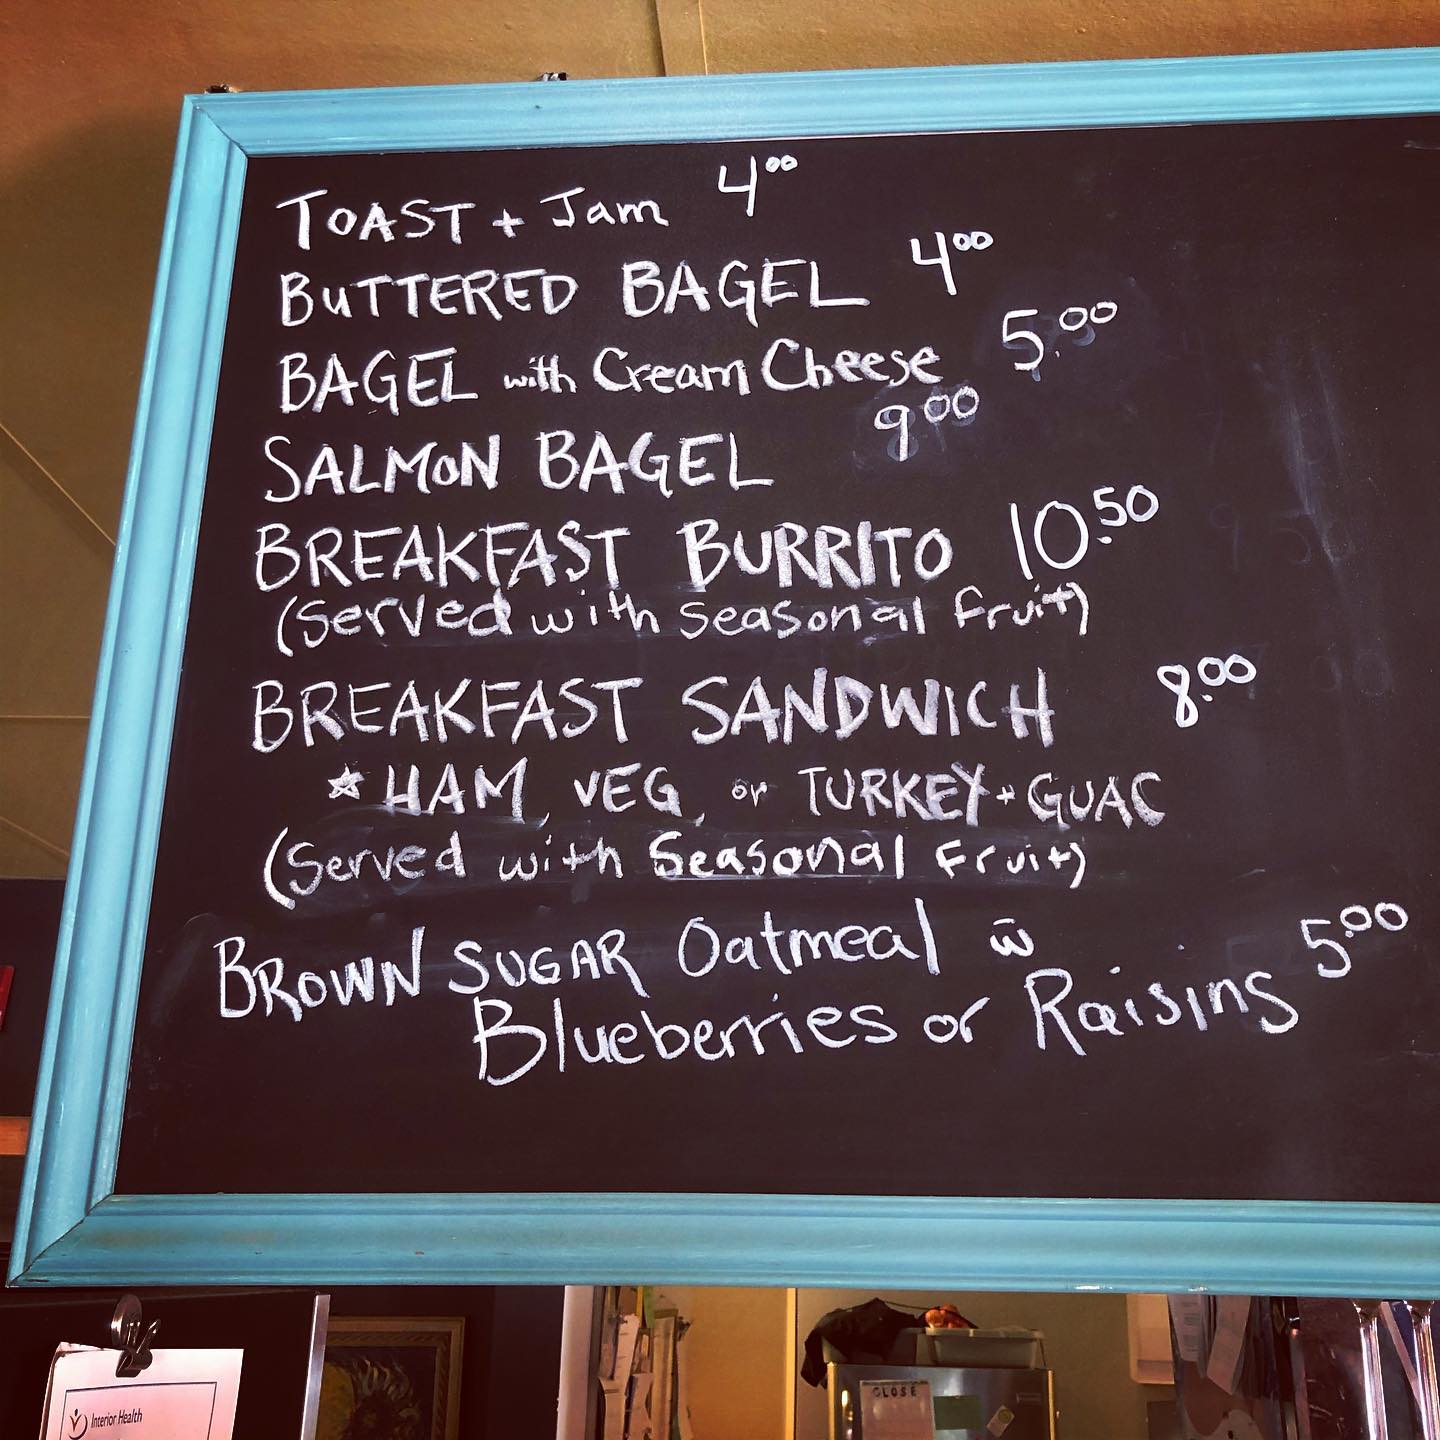 TOAST + Jam 4.00
BUTTERED BAGEL 4.00
BAGEL with Cream Cheese 5.00
SALMON BAGEL 9.00
BREAKFAST BURRITO 10.50
(Served with Seasonal Fruit)
BREAKFAST SANDWICH 8.00
☆ HAM, VEG, or TURKEY + GUAC
(Served with Seasonal Fruit)
BROWN SUGAR Oatmeal w̄
Blueberries or Raisins 5.00
Interior Health
CLOSE